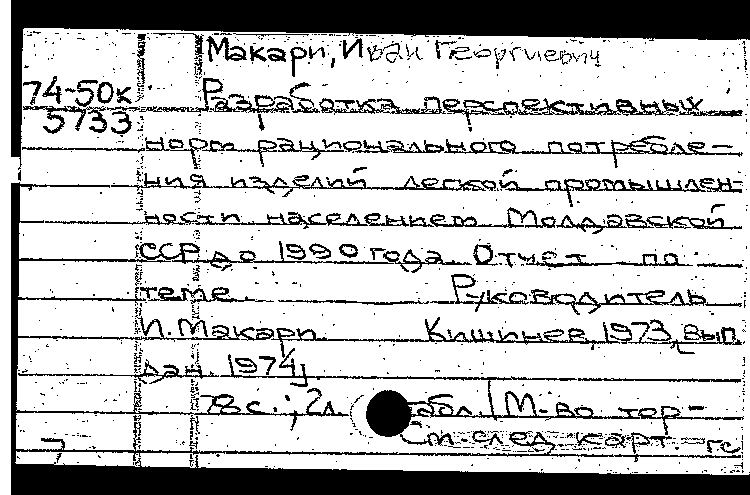 Макари, Иван Георгиевич
74-50к Разработка перспективных
5733
норм рационального потребле-
ния изделий легкой промышлен-
ности населением Молдавской
ССР до 1990 года. Отчет по
теме. Руководитель
И. Макари. Кишинев, 1973, [вып.
дан. 1974]
78с.; 2л. табл. (М-во тор-
См. след. карт. – гс
7